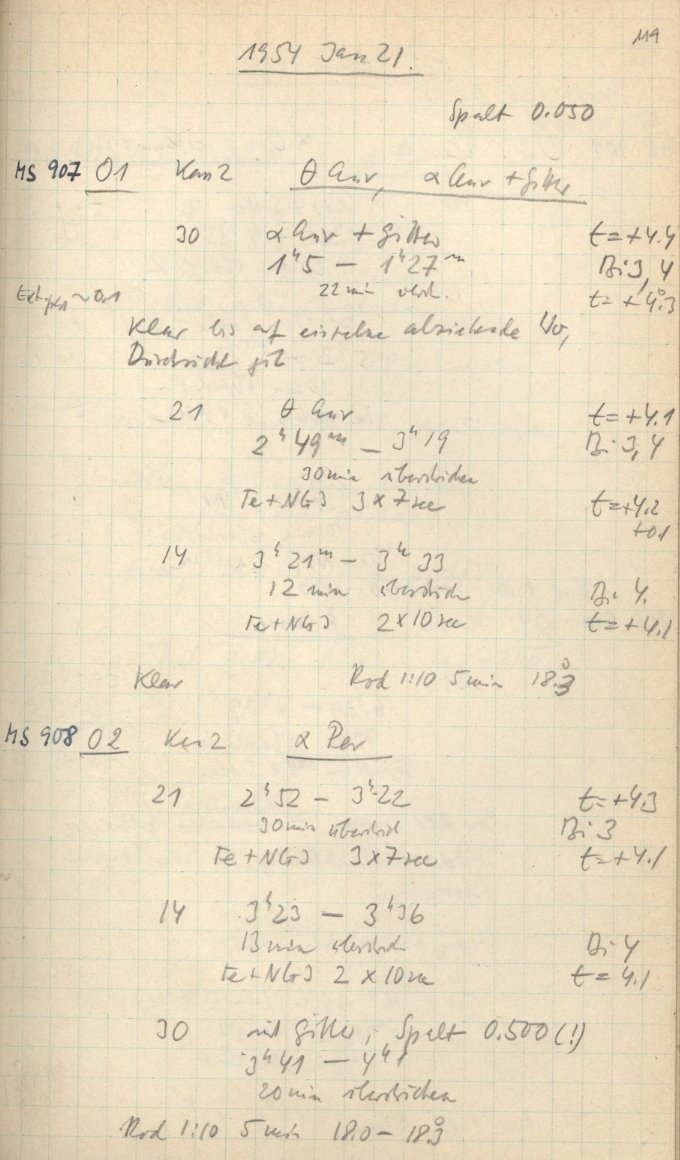 119
1954 Jan 21.
Spalt 0.050
MS 907 01 Kam 2 θ Aur, α Aur + Gitter
30 α Aur + Gitter t=+4.4
1ʰ5 – 1ʰ27ᵐ Bi 3, 4
22 min überstr. t=+4.°3
Klar bis auf einzelne abziehende Wo,
Durchsicht gut
21 θ Aur t=+4.1
2ʰ49ᵐ – 3ʰ19 Bi 3,4
30 min überstrichen
Fe+NG3 3x7sec t=+4.2
+0.1
14 3ʰ21ᵐ – 3ʰ33
12 min überstrich Bi 4.
Fe+NG3 2x10sec t=+4.1
Klar Rod 1:10 5 min 18.°3
MS 908 02 Kam 2 α Per
21 2ʰ52 – 3ʰ22 t=+4.3
30 min überstrich Bi 3
Fe+NG3 3x7sec t=+4.1
14 3ʰ23 – 3ʰ36
13 min überstrich Bi 4
Fe+NG3 2 x 10sec t=4.1
30 mit Gitter, Spalt 0.500 (!)
3ʰ41 – 4ʰ1
20 min überstrichen
Rod 1:10 5 min 18.0 – 18.°3